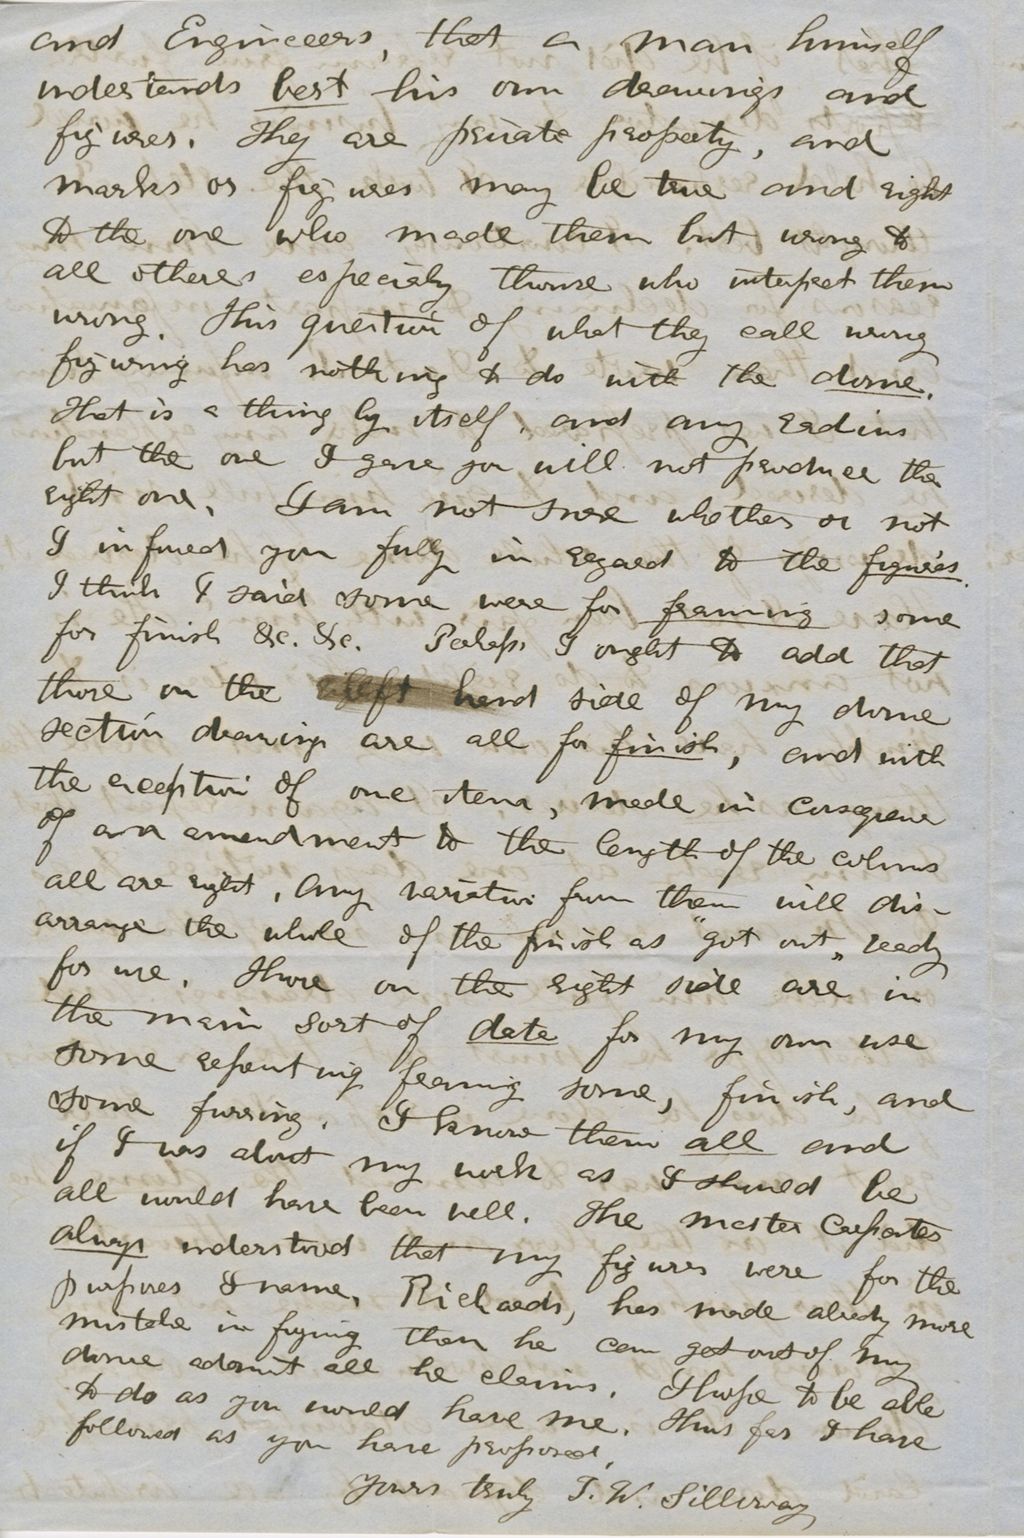 and Engineers, that a man himself
understands best his own drawings and
figures. They are private property, and
marks or figures may be true and right
to the one who made them but wrong to
all others especialy those who interpret them
wrong. This question of what they call wrong
figuring has nothing to do with the dome.
That is a thing by itself, and any radius
but the one I gave you will not produce the
right one. I am not sure whether or not
I infomed you fully in regard to the figures.
I think I said some were for framing some
for finish &c. &c. Perhaps I ought to add that
those on the left hand side of my dome
section drawings are all for finish, and with
the exception of one item, made in consequence
of an amendment to the length of the colums
all are right, Any variation from them will dis-
arrange the whole of the finish as "got out" ready
for use. Those on the right side are in
the main sort of data for my own use
some representing framing some, finish, and
some furring. I know them all and
if I was about my work as I should be
all would have been well. The master Carpenter
always understood that my figures were for the
purposes I name. Richards, has made alredy more
mistake in figuring than he can get out of my
dome admit all he claims. I hope to be able
to do as you would have me. Thus far I have
followed as you have proposed.
Yours truly T. W. Silloway